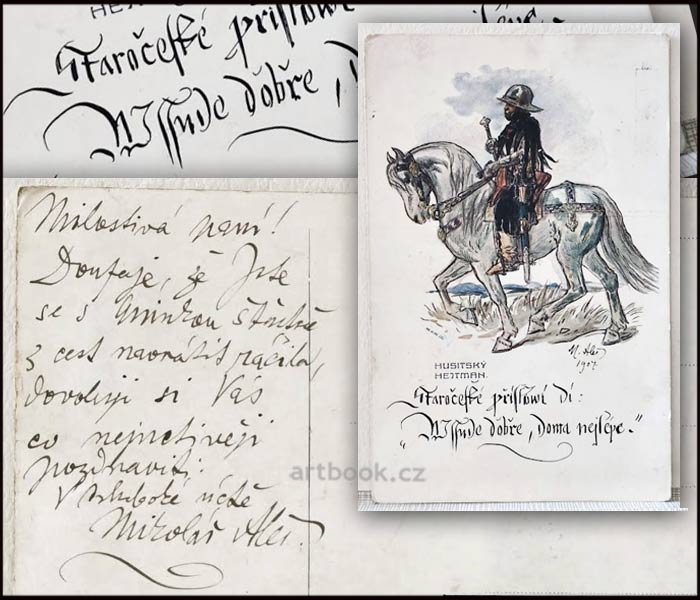 HEJTMAN.
Staročeské přisłowi
Wssude dobře, D
Milostivá paní!
Doufaje, že Jste
se s Aninkou šťastně
z cest navrátit ráčila,
dovoluji si Vás
co nejuctivěji
pozdraviti.
V hluboké úctě
Mikoláš Aleš.
M. Aleš
1907
HUSITSKÝ
HEJTMAN.
Staročeské přisłowi dí:
"Wssude dobře, doma nejlépe."
artbook.cz